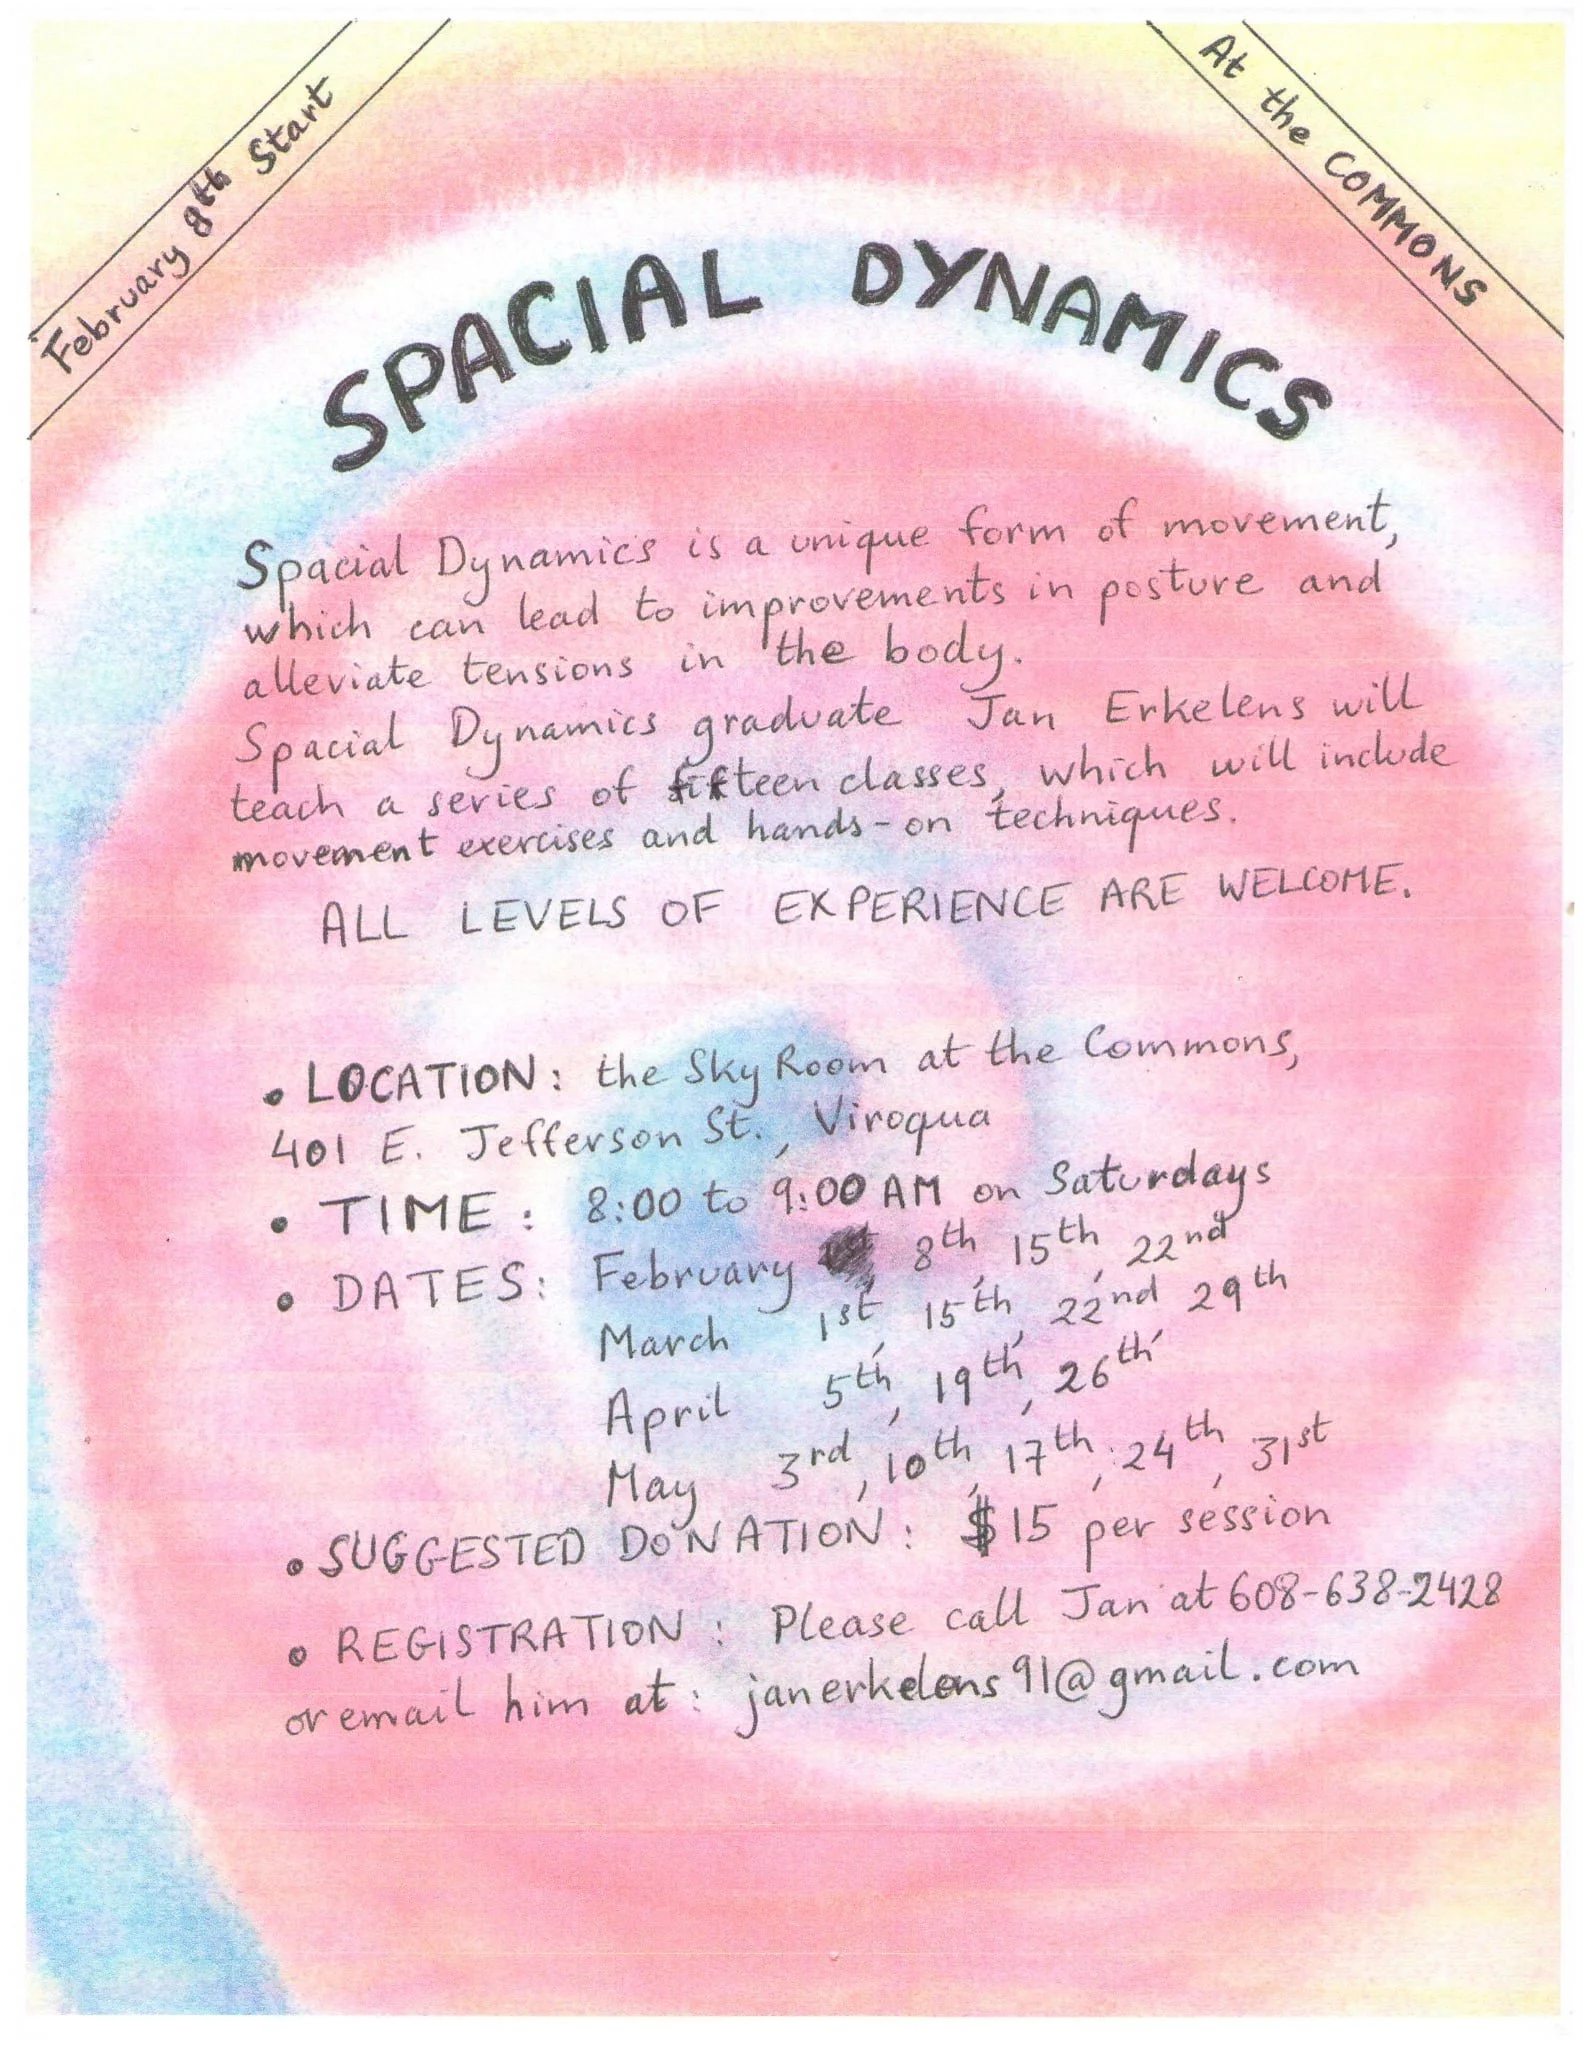 February 8th Start
At the COMMONS
SPACIAL DYNAMICS
Spacial Dynamics is a unique form of movement,
which can lead to improvements in posture and
alleviate tensions in the body.
Spacial Dynamics graduate Jan Erkelens will
teach a series of fifteen classes, which will include
movement exercises and hands-on techniques.
ALL LEVELS OF EXPERIENCE ARE WELCOME.
• LOCATION: the Sky Room at the Commons,
401 E. Jefferson St., Viroqua
• TIME: 8:00 to 9:00 AM on Saturdays
• DATES: February 8th, 15th, 22nd
March 1st, 15th, 22nd, 29th
April 5th, 19th, 26th
May 3rd, 10th, 17th, 24th, 31st
• SUGGESTED DONATION: $15 per session
• REGISTRATION: Please call Jan at 608-638-2428
or email him at: janerkelens91@gmail.com